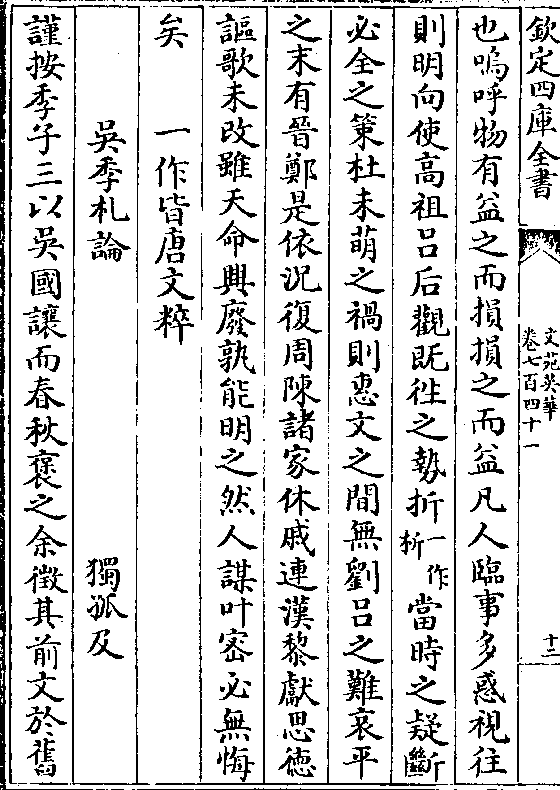 欽定四庫全書
文苑英華
卷七百四十一
十二
也嗚呼物有益之而損損之而益凡人臨事多惑視往
則明向使高祖呂后觀既徃之勢折一作析當時之疑斷
必全之策杜未萌之禍則惠文之間無劉呂之難哀平
之末有晉鄭是依況復周陳諸家休戚連漢黎獻思德
謳歌未改雖天命興廢孰能明之然人謀叶宻必無悔
矣　一作皆唐文粹
吳季札論　獨孤及
謹按季子三以吳國讓而春秋襃之余徵其前文於舊